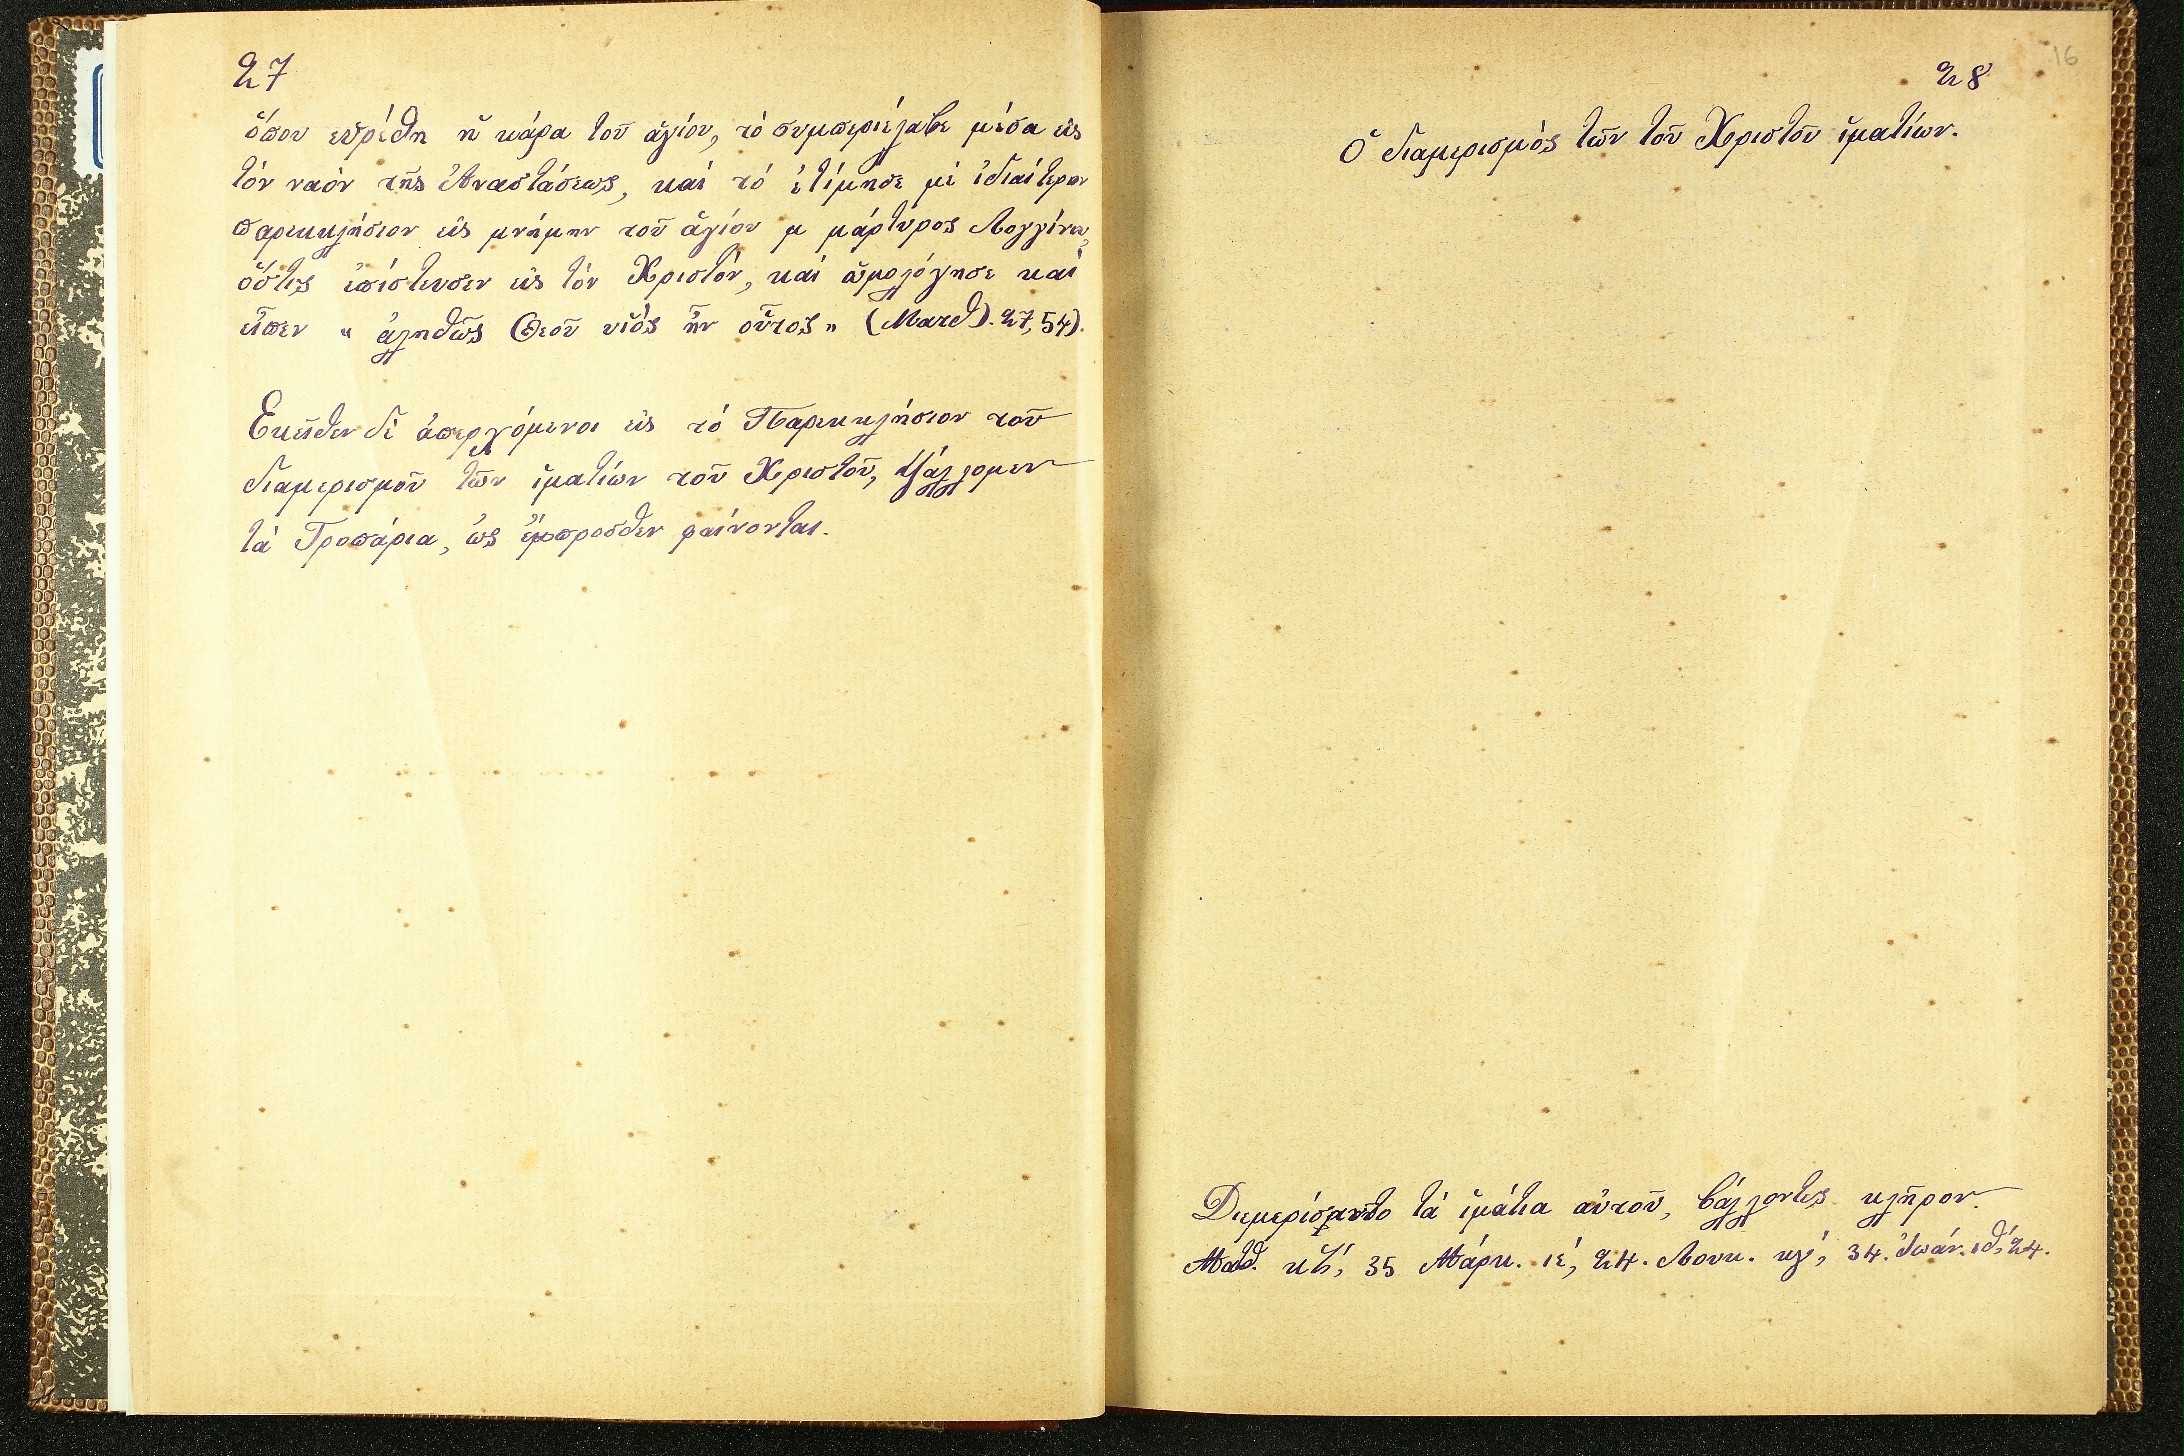 27
ὅπου εὑρέθη ἡ κάρα τοῦ ἁγίου, τό συμπεριέλαβε μέσα εἰς
τόν ναόν τῆς Ἀναστάσεως, καί τό ἐτίμησε μέ ἰδιαίτερον
παρεκκλήσιον εἰς μνήμην τοῦ ἁγίου μ μάρτυρος Λογγίνου,
ὅστις ἐπίστευσεν εἰς τόν Χριστόν, καί ὡμολόγησε καί
εἶπεν „ ἀληθῶς Θεοῦ υἱός ἦν οὗτος „ (Ματθ). 27, 54).
Εκεῖθεν δέ ἀπερχόμενοι εἰς τό Παρεκκλήσιον τοῦ
διαμερισμοῦ τῶν ἱματίων τοῦ Χριστοῦ, ψάλλομεν
τά Τροπάρια, ὡς ἔμπροσθεν φαίνονται.
16
28
Ὁ διαμερισμός τῶν τοῦ Χριστοῦ ἱματίων.
Διεμερίσαντο τά ἱμάτια αὐτοῦ, βάλλοντες κλῆρον.
Ματθ. κζ', 35 Μάρκ. ιε', 24. Λουκ. κγ', 34. Ἰωάν. ιθ', 24.